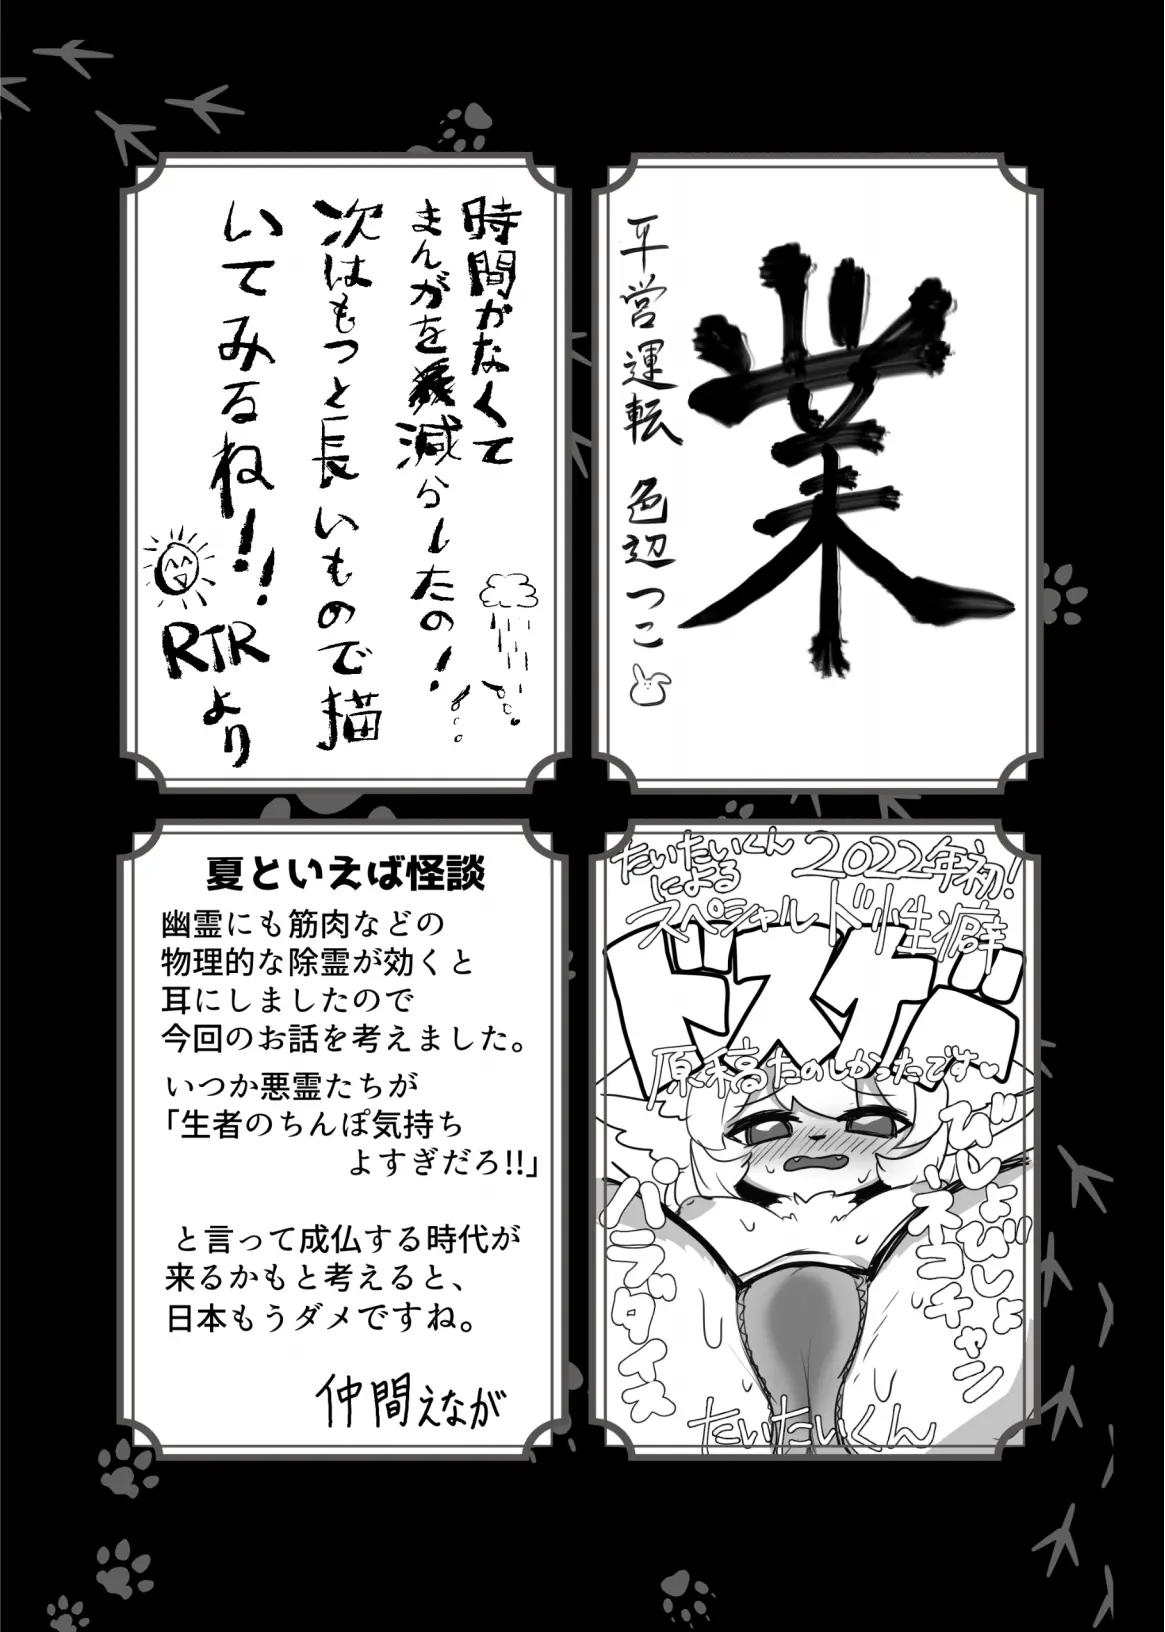 業
平営運転 色辺つこ
時間がなくて
まんがを減らしたの!
次はもっと長いもので描
いてみるね!!
RTRより
たいたいくん
による
2022年初!
スペシャルド性癖
ドスケベ
原稿たのしかったです♡
びしょびしょ
ネコチャン
パラダイス
たいたいくん
夏といえば怪談
幽霊にも筋肉などの
物理的な除霊が効くと
耳にしましたので
今回のお話を考えました。
いつか悪霊たちが
「生者のちんぽ気持ち
よすぎだろ!!」
と言って成仏する時代が
来るかもと考えると、
日本もうダメですね。
仲間えなが